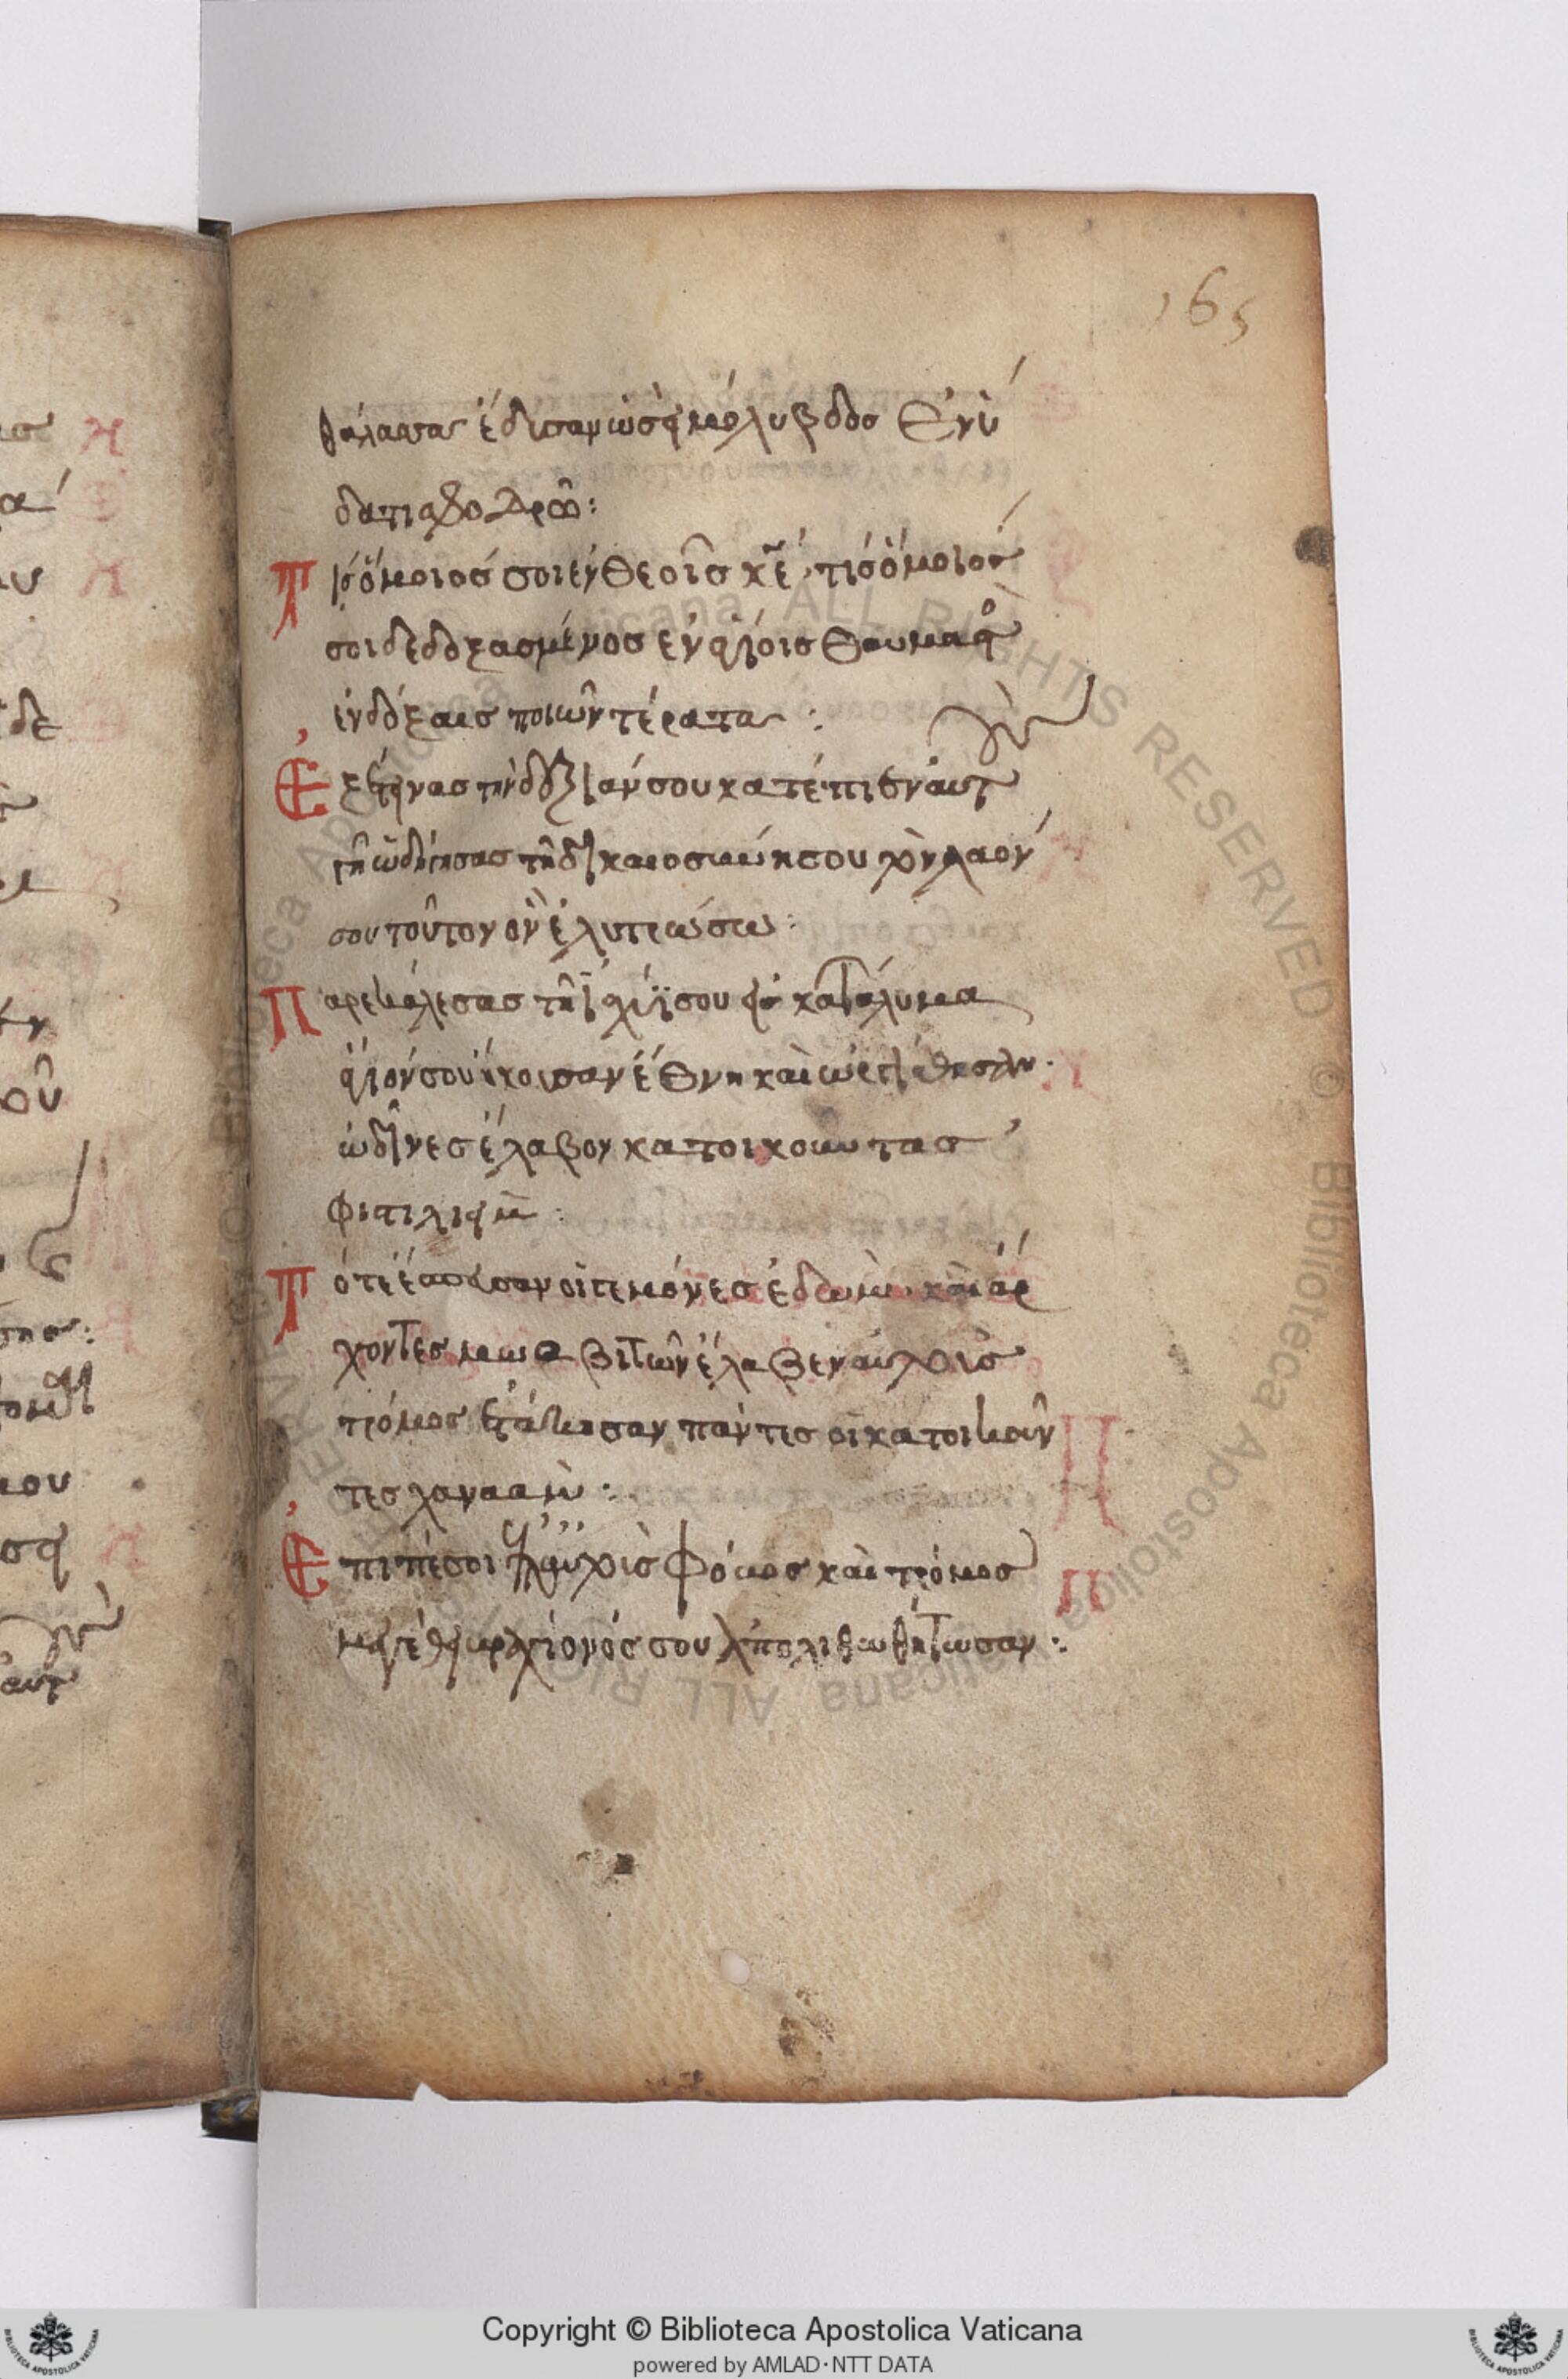 165
θάλασσα ἔδυσαν ὡσεὶ μόλυβδος ἐν ὕ
δατι σφοδρῶ:
Τίς ὅμοιός σοι ἐν θεοῖς κε, τίς ὅμοιός
σοι δεδοξασμένος ἐν ἁγίοις θαυμαστὸ
ἐνδόξαις ποιῶν τέρατα:
Ἐξέτεινας τὴν δεξιάν σου κατέπιεν αὐτ
γῆ ὡδήγησας τῆ δικαιοσύνη σου τὸν λαόν
σου τοῦτον ὃν ἐλυτρώσω:
Παρεκάλεσας τῆ ἰσχύϊ σου εἰς κατάλυμα
ἅγιόν σου ἤκουσαν ἔθνη καὶ ὠργίσθησαν.
ὠδῖνες ἔλαβον κατοικοῦντας
φυλιστιεὶμ:
Τότε ἔσπευσαν οἱ γεμόνες ἐδωμ· καὶ ἄρ
χοντες μωαβιτῶν ἔλαβεν αὐτοὺς
τρόμος ἐτάκησαν πάντες οἱ κατοικοῦν
τες χαναὰν:
Ἐπιπέσοι ἐπ' αὐτοὺς φόβος καὶ τρόμος
μεγέθει βραχίονός σου ἀπολιθωθήτωσαν:
Copyright © Biblioteca Apostolica Vaticana
powered by AMLAD·NTT DATA